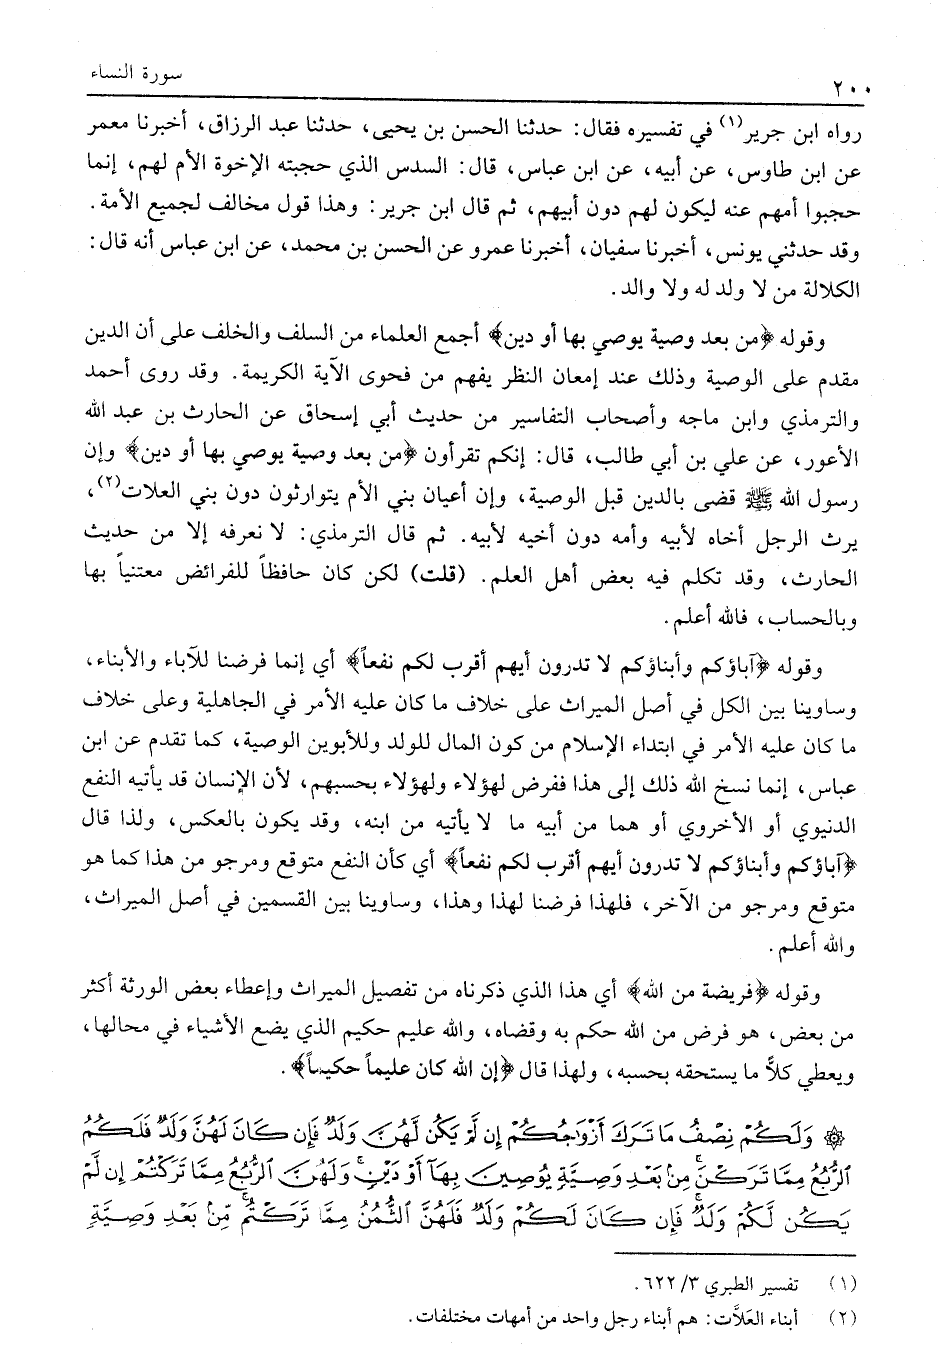 ٢٠٠ سورة النساء
رواه ابن جرير(١) في تفسيره فقال: حدثنا الحسن بن يحيى، حدثنا عبد الرزاق، أخبرنا معمر
عن ابن طاوس، عن أبيه، عن ابن عباس، قال: السدس الذي حجبته الإخوة الأم لهم، إنما
حجبوا أمهم عنه ليكون لهم دون أبيهم، ثم قال ابن جرير: وهذا قول مخالف لجميع الأمة.
وقد حدثني يونس، أخبرنا سفيان، أخبرنا عمرو عن الحسن بن محمد، عن ابن عباس أنه قال:
الكلالة من لا ولد له ولا والد.
وقوله ﴿من بعد وصية يوصي بها أو دين﴾ أجمع العلماء من السلف والخلف على أن الدين
مقدم على الوصية وذلك عند إمعان النظر يفهم من فحوى الآية الكريمة. وقد روى أحمد
والترمذي وابن ماجه وأصحاب التفاسير من حديث أبي إسحاق عن الحارث بن عبد الله
الأعور، عن علي بن أبي طالب، قال: إنكم تقرأون ﴿من بعد وصية يوصي بها أو دين﴾ وإن
رسول الله ﷺ قضى بالدين قبل الوصية، وإن أعيان بني الأم يتوارثون دون بني العلات(٢)،
يرث الرجل أخاه لأبيه وأمه دون أخيه لأبيه. ثم قال الترمذي: لا نعرفه إلا من حديث
الحارث، وقد تكلم فيه بعض أهل العلم. (قلت) لكن كان حافظاً للفرائض معتنياً بها
وبالحساب، فالله أعلم.
وقوله ﴿آباؤكم وأبناؤكم لا تدرون أيهم أقرب لكم نفعاً﴾ أي إنما فرضنا للآباء والأبناء،
وساوينا بين الكل في أصل الميراث على خلاف ما كان عليه الأمر في الجاهلية وعلى خلاف
ما كان عليه الأمر في ابتداء الإسلام من كون المال للولد وللأبوين الوصية، كما تقدم عن ابن
عباس، إنما نسخ الله ذلك إلى هذا ففرض لهؤلاء ولهؤلاء بحسبهم، لأن الإنسان قد يأتيه النفع
الدنيوي أو الأخروي أو هما من أبيه ما لا يأتيه من ابنه، وقد يكون بالعكس، ولذا قال
﴿آباؤكم وأبناؤكم لا تدرون أيهم أقرب لكم نفعاً﴾ أي كأن النفع متوقع ومرجو من هذا كما هو
متوقع ومرجو من الآخر، فلهذا فرضنا لهذا وهذا، وساوينا بين القسمين في أصل الميراث،
والله أعلم.
وقوله ﴿فريضة من الله﴾ أي هذا الذي ذكرناه من تفصيل الميراث وإعطاء بعض الورثة أكثر
من بعض، هو فرض من الله حكم به وقضاه، والله عليم حكيم الذي يضع الأشياء في محالها،
ويعطي كلاً ما يستحقه بحسبه، ولهذا قال ﴿إن الله كان عليماً حكيماً﴾.
۞ وَلَكُمْ نِصْفُ مَا تَرَكَ أَزْوَاجُكُمْ إِن لَّمْ يَكُن لَّهُنَّ وَلَدٌ فَإِن كَانَ لَهُنَّ وَلَدٌ فَلَكُمُ
الرُّبُعُ مِمَّا تَرَكْنَ مِنْ بَعْدِ وَصِيَّةٍ يُوصِينَ بِهَا أَوْ دَيْنٍ وَلَهُنَّ الرُّبُعُ مِمَّا تَرَكْتُمْ إِن لَّمْ
يَكُن لَّكُمْ وَلَدٌ فَإِن كَانَ لَكُمْ وَلَدٌ فَلَهُنَّ الثُّمُنُ مِمَّا تَرَكْتُم مِّنْ بَعْدِ وَصِيَّةٍ
(١) تفسير الطبري ٣/ ٦٢٢.
(٢) أبناء العَلاَّت: هم أبناء رجل واحد من أمهات مختلفات.